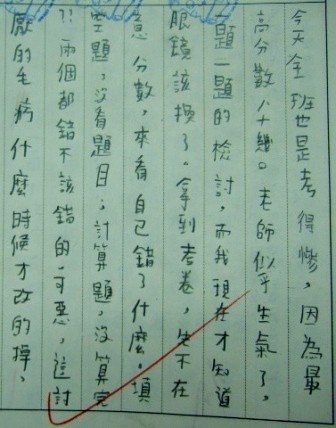 今天全班也是考得慘，因為最
高分數八十幾。老師似乎生氣了，
題一題的檢討，而我現在才知道
眼鏡該換了。拿到考卷，先不在
意分數，來看自己錯了什麼，填
空題，沒看題目，計算題，沒算完
?!兩個都錯不該錯的，可惡，這討
厭的毛病什麼時候才改的掉，